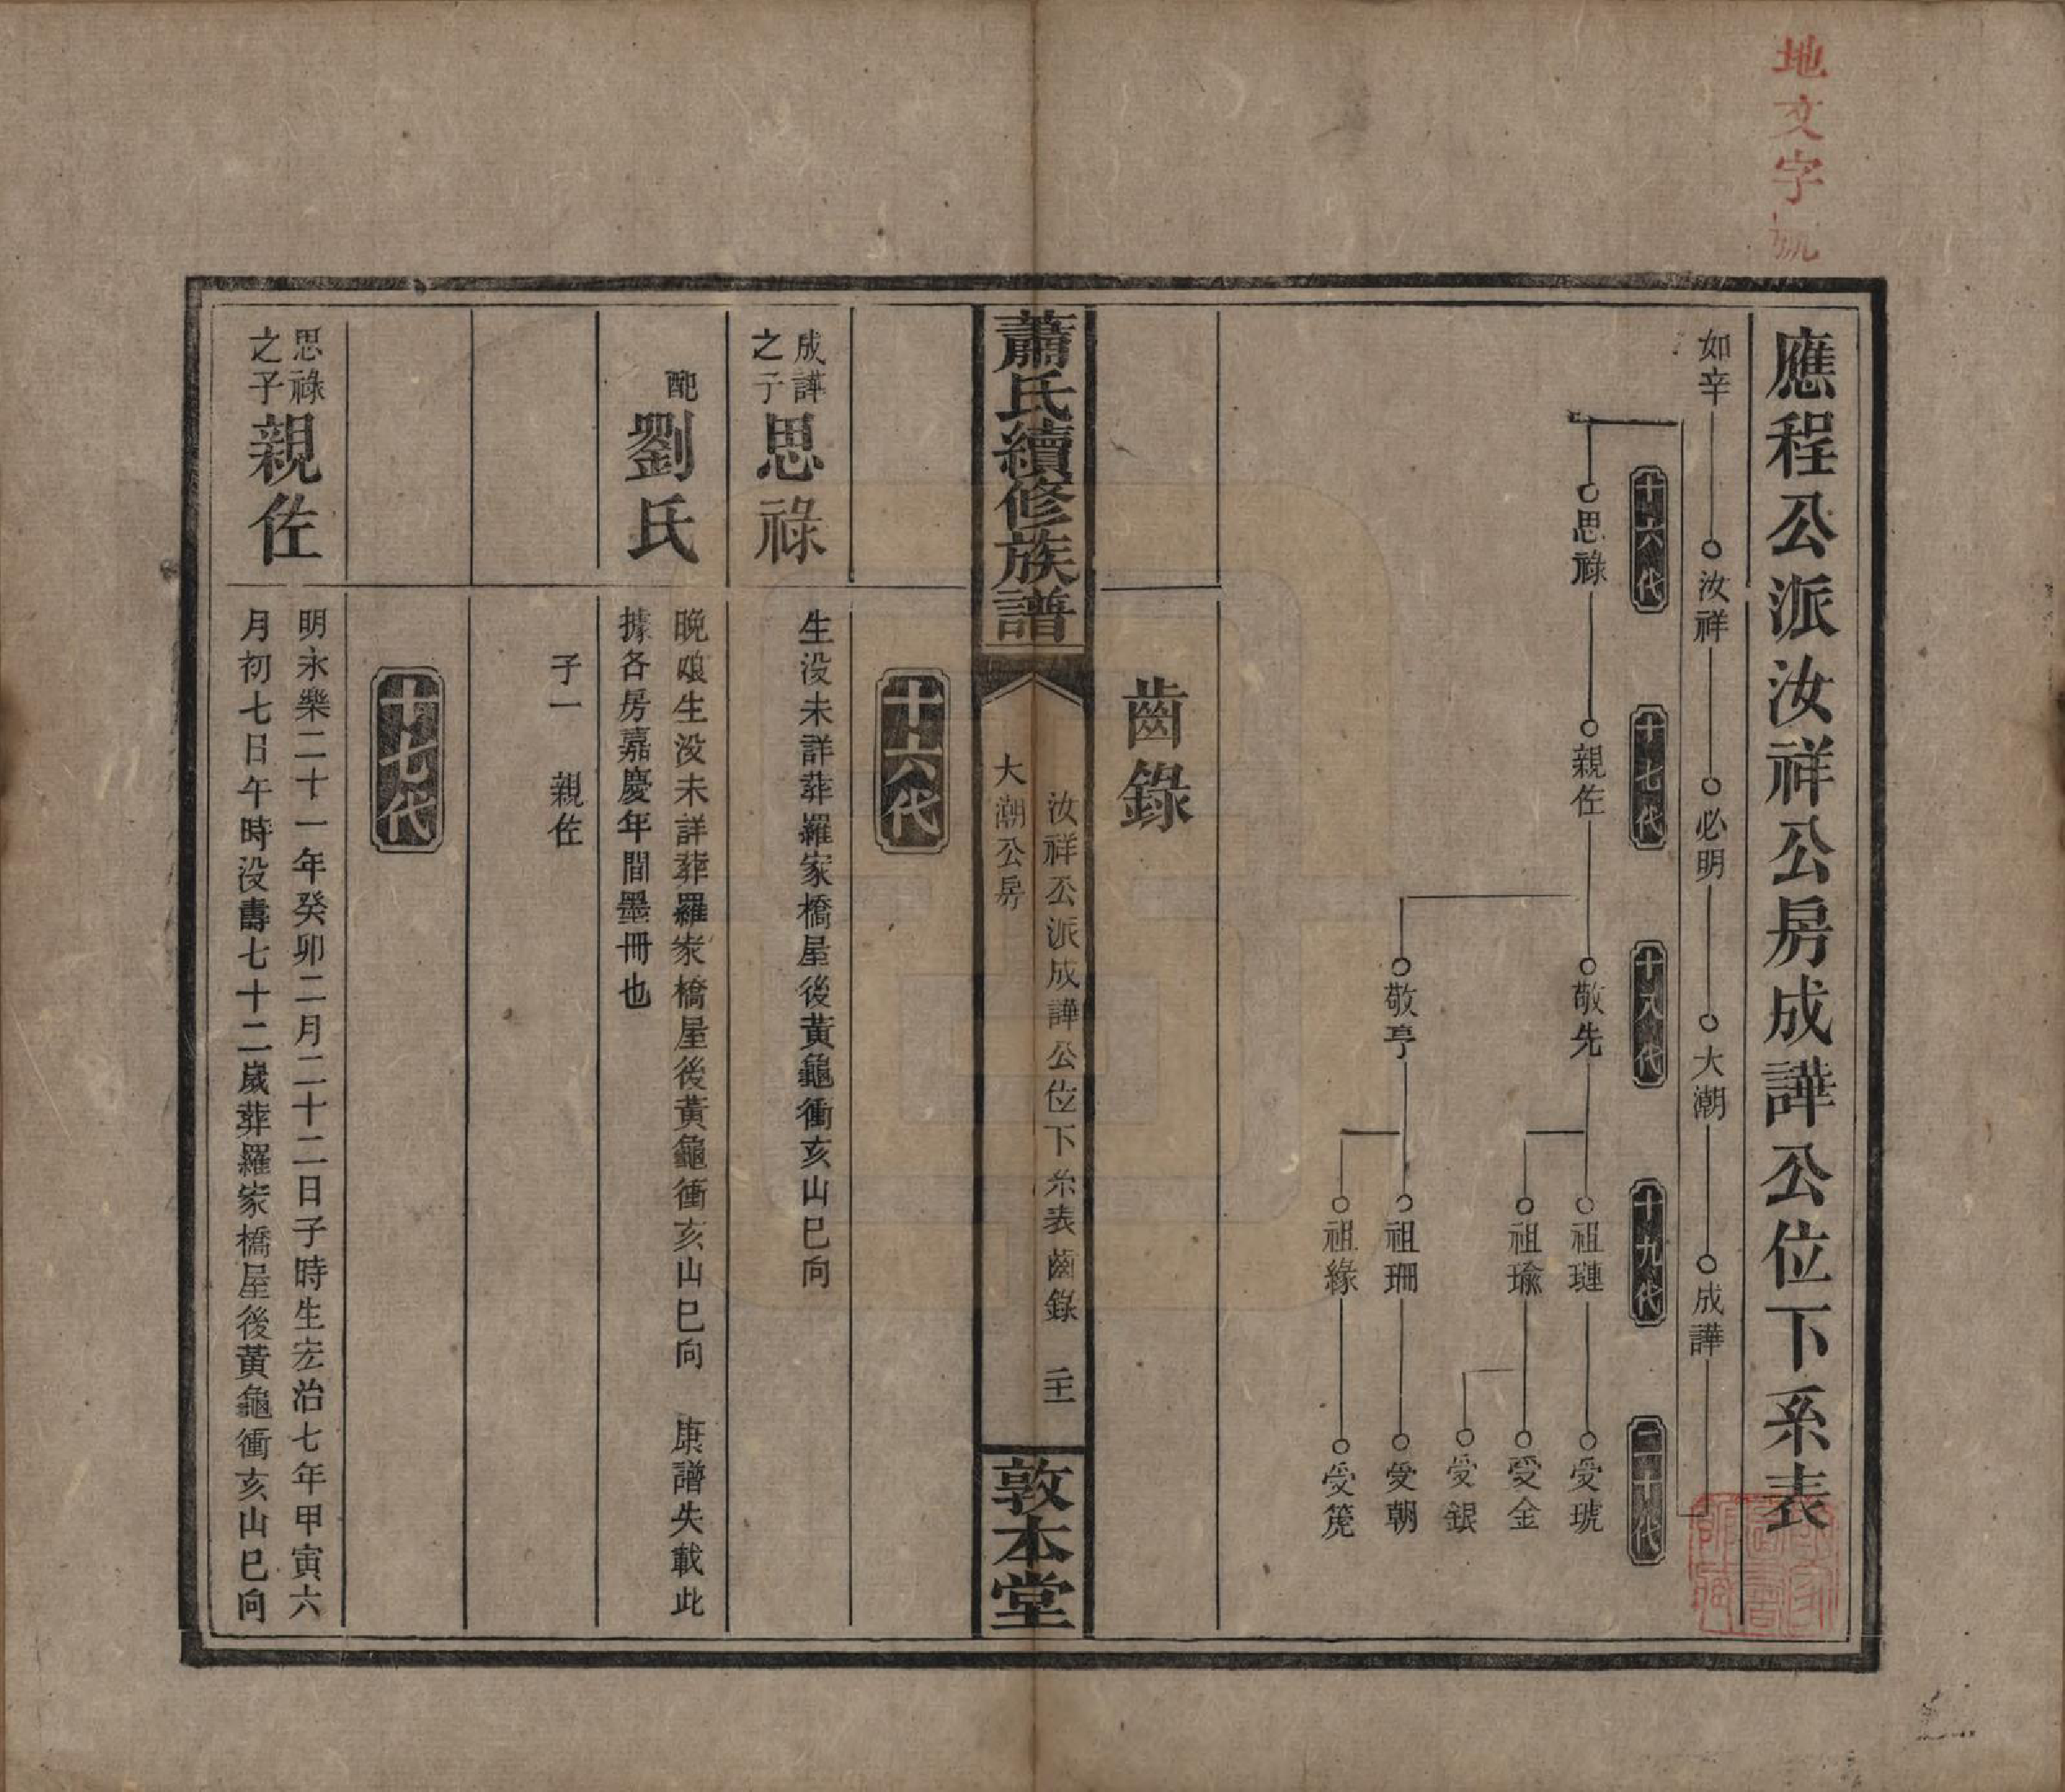 地文字號
應程公派汝祥公房成譁公位下系表
如辛 汝祥 必明 大潮 成譁
十六代 十七代 十八代 十九代 二十代
思祿 親佐 敬先 祖璉 受琥
祖瑜 受金
受銀
敬亭 祖珊 受朝
祖緣 受箎
齒錄
蕭氏續修族譜
汝祥公派成譁公位下系表齒錄
大潮公房
敦本堂
十六代
成譁之子
思祿
生没未詳葬羅家橋屋後黃龜衝亥山巳向
配
劉氏
晚娘生没未詳葬羅家橋屋後黃龜衝亥山巳向 康譜失載此
據各房嘉慶年間墨冊也
子一 親佐
十七代
思祿之子
親佐
明永樂二十一年癸卯二月二十二日子時生宏治七年甲寅六
月初七日午時没壽七十二歲葬羅家橋屋後黃龜衝亥山巳向